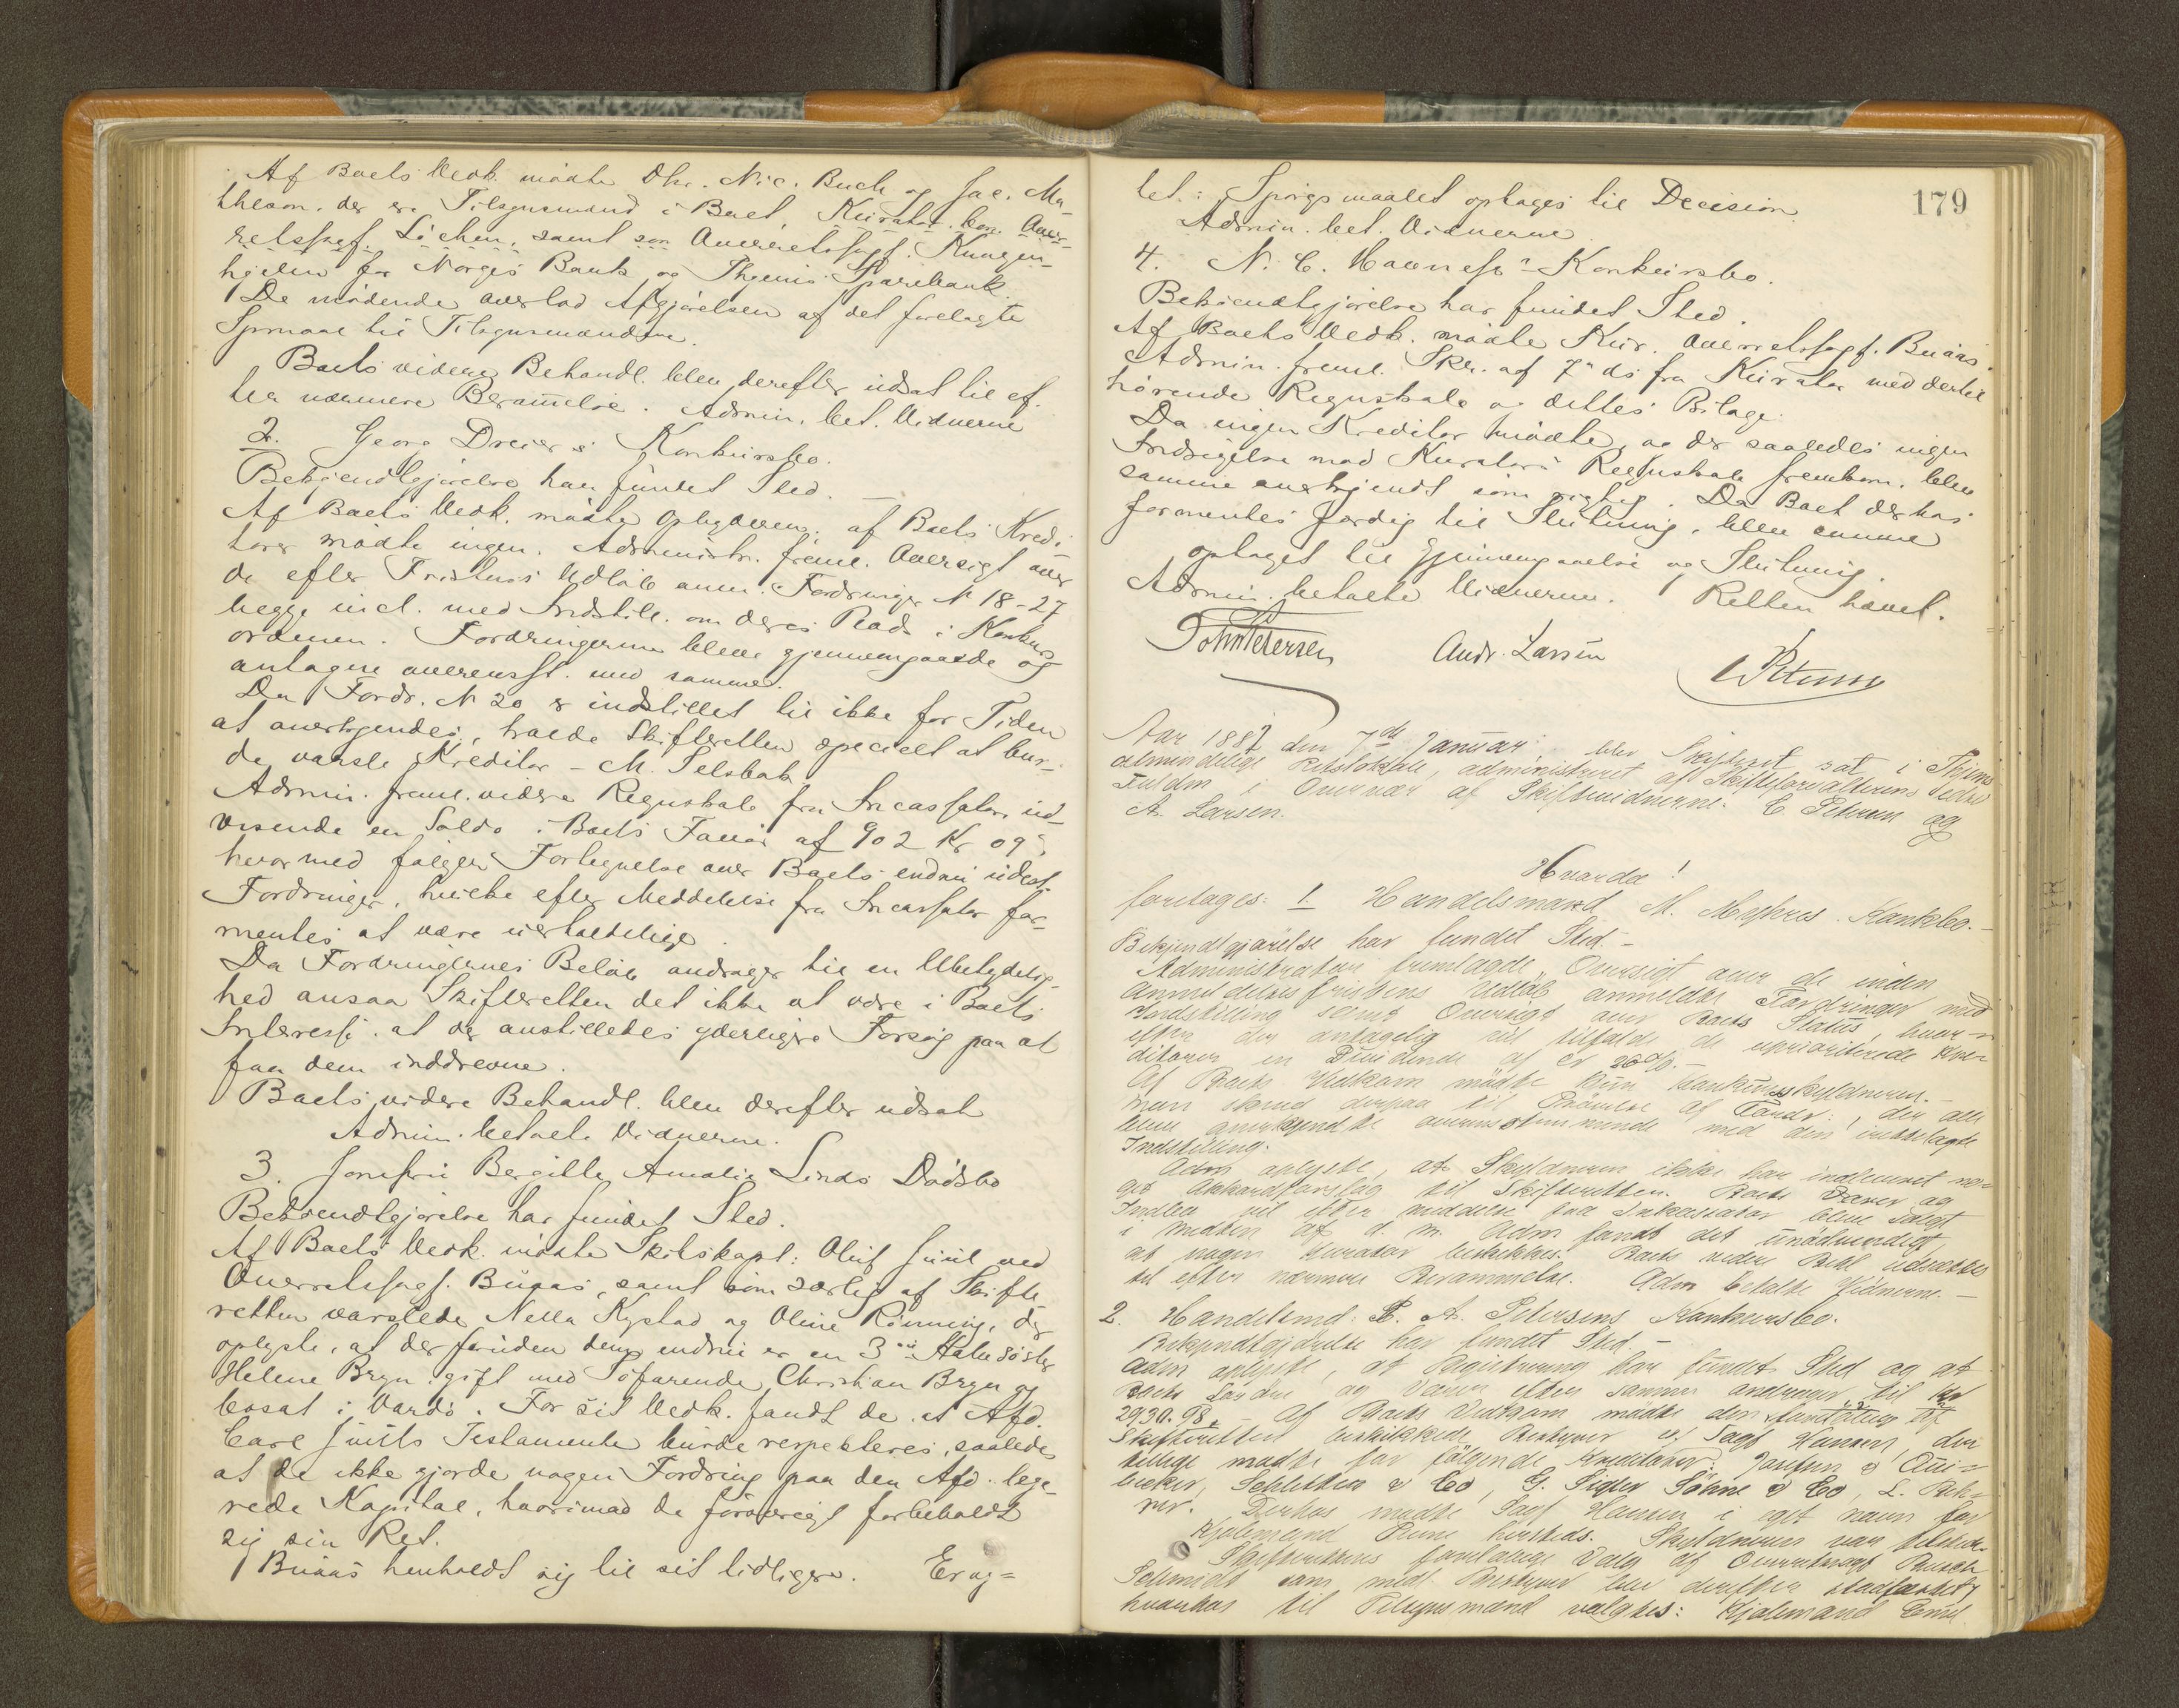 Af Boets Vedk. mødte Dhr. Nic. Buch og Jac. Ma-
theson, der er Tilsynsmænd i Boet, Kurator, kon. Over-
retssagf. Løchen, samt son Overretssagf. Knagen-
hjelm for Norges Bank og Thjems Sparebank.
De mødende overlod Afgjørelsen af det forelagte
Spmaal til Tilsynsmændene.
Boets videre Behandl. blev derefter udsat til ef-
ter nærmere Berammelse. Admin. bet. Vidnerne
2. Georg Dreier's Konkursbo.
Bekjendtgjørelse har fundet Sted. —
Af Boets Vedk. mødte Opbyderen; af Boets Kredi-
torer mødte ingen. Administr. freml. Oversigt over
de efter Fristens Udløb anm. Fordringer № 18-27
begge incl. med Indstill. om deres Plads i Konkurs-
ordenen. Fordringerne bleve gjennemgaaede og
antagne overensst. med samme.
Da Fordr. № 20 er indstillet til ikke for Tiden
at anerkjendes, havde Skifteretten specielt at bur-
de varsle Kreditor - M. Selsbak
Admin. freml. videre Regnskab fra Incassator, ud-
visende en Saldo i Boets Favør af 902 Kr 09,
hvormed følger Fortegnelse over Boets endnu udest.
Fordringer, hvilke efter Meddelelse fra Incassator for-
mentes at være uerholdelige.
Da Fordringernes Beløb andrager til en Ubetydelig-
hed ansaa Skifteretten det ikke at være i Boets
Interesse, at der anstilledes yderligere Forsøg paa at
faa dem inddrevne.
Boets videre Behandl. blev derefter udsat
Admin. betalte Vidnerne.
3. Jomfru Bergitte Amalia Linds Dødsbo
Bekjendtgjørelse har fundet Sted.
Af Boets Vedk. mødte Skibskapt. Oluf Juul ved
Overretssagf. Buaas, samt som særlig af Skifte-
retten varslede Nella Kystad og Oline Rønning, der
oplyste, at der foruden dem endnu er en 3die Halvsøster
Helene Bryn, gift med Søfarende Christian Bryn og
bosat i Vardø. For sit Vedk. fandt de at Afd.
Carl Juuls Testamente burde respekteres, saaledes
at de ikke gjorde nogen Fordring paa den Afd. lege-
rede Kapital, hvorimod de forøvrigt forbeholdt
sig sin Ret.
Buaas henholdt sig til sit tidligere. Erag=
179
tet: Spørgsmaalet optages til Decision
Admin. bet. Vidnerne
4. N. C. Havness' Konkursbo.
Bekjendtgjørelse har fundet Sted.
Af Boets Vedk. mødte Kur. Overretssagf. Buaas.
Admin. freml. Skr. af 7de ds fra Kurator med dertil
hørende Regnskab og dettes Bilage.
Da ingen Kreditor mødte, og der saaledes ingen
Indsigelse mod Kurators Regnskab fremkom, blev
samme anerkjendt som rigtig. Da Boet derhos
formentes færdig til Slutning, blev samme
optaget til Gjennemgaaelse og Slutning.
Admin. betalte Vidnerne. Retten hævet.
John Petersen Andr. Larsen C Petersen
Aar 1887 den 7de Januar blev Skifteret sat i Thjems
almindelige Retslokale, administreret af Skifteforvalterens edsv
Fuldm i Overvær af Skiftevidnerne: C. Petersen og
A. Larsen.
Hvorda!
foretages: 1. Handelsmand M. Konkbo. —
Bekjendtgjørelse har fundet Sted. —
Administrator fremlagde Oversigt over de inden
Anmeldelsesfristens Udløb anmeldte Fordringer med
Indstilling samt Oversigt over Boets Status, hvor-
efter der antagelig vil tilfalde de uprioriterede Kre-
ditorer en Dividende af ca 20%. —
Af Boets Vedkom mødte kun Konkursskyldneren. —
Man skred derpaa til Prøvelse af Fordr., der alle
bleve anerkjendte overensstemmende med den fremlagte
Indstilling.
Adm oplyste, at Skyldneren ikke har indleveret no-
get Akkordforslag til Skifteretten. Boets Varer og
Indbo vil efter meddelse fra Inkassator blive solgt
i midten af d. m. Adm fandt det unødvendigt,
at nogen Kurator beskikkes. Boets videre Behl udsattes
til efter nærmere Berammelse. Adm betalte Vidnerne. —
2. Handelsmd. P. A. Petersens Konkursbo.
Bekjendtgjørelse har fundet Sted. —
Adm oplyste, at Registrering har fundet Sted og at
Boets Løsøre og Varer efter samme andrager til Kr
2930.98. — Af Boets Vedkom mødte den foreløbig af
Skifteretten beskikkede Bestyrer og Sagf Hansen, der
tillige mødte for følgende Kreditorer: & Qui-
becker, Schletter & Co, G. Sigler Söhne & Co, L. Bek-
rer. Derhos mødte Sagf Hansen i egt navn for
Kjøbmand Rune hersteds. Skyldneren var tilstede.
Skifterettens foreløbige Valg af Overretssagf Busch
Schmidt som midl. Bestyrer blev derefter stadfæstet,
hvorhos til Tilsynsmænd valgtes: Kjøbmand Emil